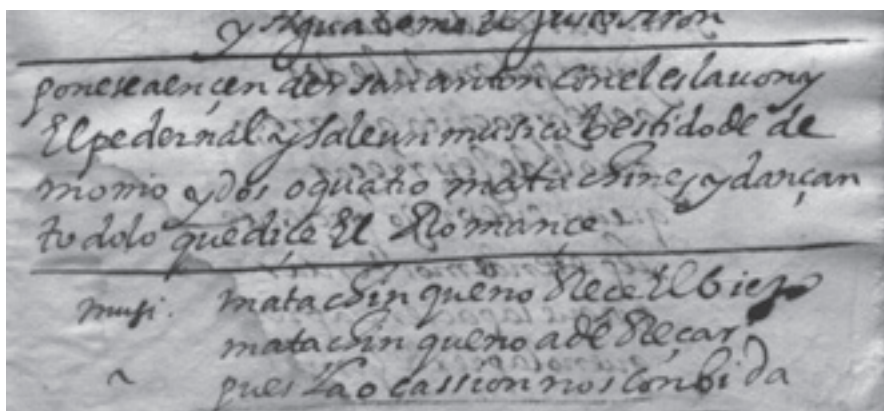 y Agua Como el
poneseaençender san anton con el eslauon y
El pedernal y sale un musico bestido de de
monio y dos o quatro matachines y dançan
todo lo que diçe El Romançe
musi. matachin que no Reçe El biejo
matachin que no a de Reçar
pues La o cassion nos conbida